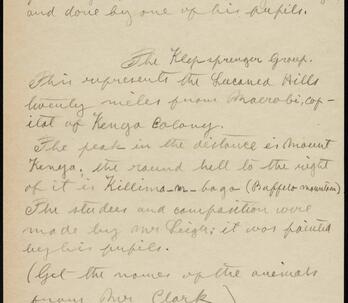 and done by one of his pupils.
The Klip-sprenger Group.
This represents the Lucania Hills
twenty miles from Niarobi, cap-
ital of Kenya Colony.
The peak in the distance is Mount
Kenya; the round hell to the right
of it is Killima-m-bogo (Buffelo mountain)
The studees and composition were
made by Mr Leigh; it was painted
by his pupils.
(Get the names of the animals
from Mr Clark)